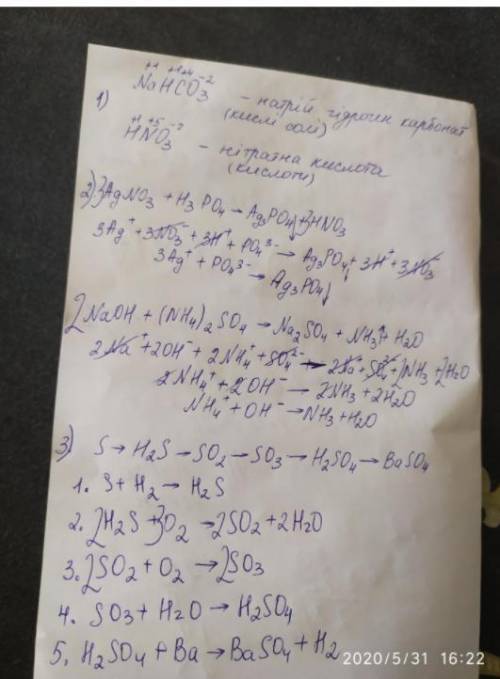 +1 +1 +4 -2
NaHCO₃ - натрій гідроген карбонат
1) (кислі солі)
+1 +5 -2
HNO₃ - нітратна кислота
(кислоти)
2) 3AgNO₃ + H₃PO₄ → Ag₃PO₄↓ + 3HNO₃
3Ag⁺ + 3NO₃⁻ + 3H⁺ + PO₄³⁻ → Ag₃PO₄↓ + 3H⁺ + 3NO₃
3Ag⁺ + PO₄³⁻ → Ag₃PO₄↓
2NaOH + (NH₄)₂SO₄ → Na₂SO₄ + NH₃↑ + H₂O
2Na⁺ + 2OH⁻ + 2NH₄⁺ + SO₄²⁻ → 2Na⁺ + SO₄²⁻ + 2NH₃ + 2H₂O
2NH₄⁺ + 2OH⁻ → 2NH₃ + 2H₂O
NH₄⁺ + OH⁻ → NH₃ + H₂O
3) S → H₂S → SO₂ → SO₃ → H₂SO₄ → BaSO₄
1. S + H₂ → H₂S
2. 2H₂S + 3O₂ → 2SO₂ + 2H₂O
3. 2SO₂ + O₂ → 2SO₃
4. SO₃ + H₂O → H₂SO₄
5. H₂SO₄ + Ba → BaSO₄ + H₂
2020/5/31 16:22